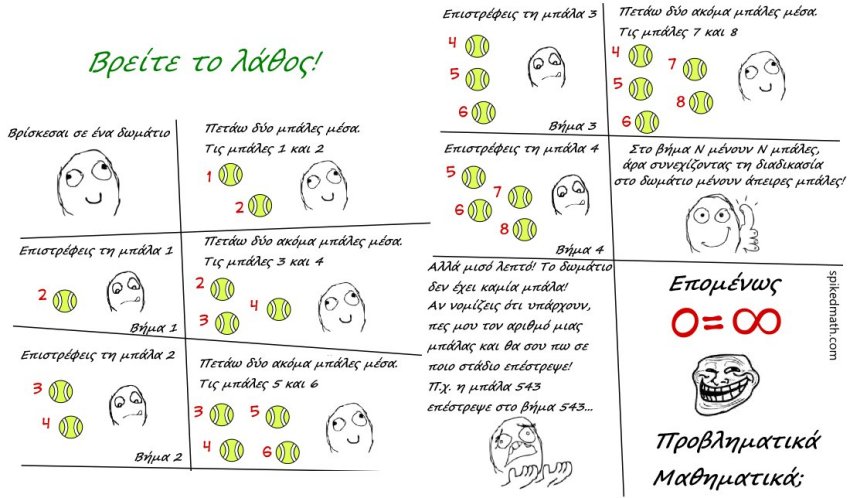 Βρείτε το λάθος!
Βρίσκεσαι σε ένα δωμάτιο
Πετάω δύο μπάλες μέσα.
Τις μπάλες 1 και 2
1
2
Επιστρέφεις τη μπάλα 1
2
Βήμα 1
Πετάω δύο ακόμα μπάλες μέσα.
Τις μπάλες 3 και 4
2
3
4
Επιστρέφεις τη μπάλα 2
3
4
Βήμα 2
Πετάω δύο ακόμα μπάλες μέσα.
Τις μπάλες 5 και 6
3
5
4
6
Επιστρέφεις τη μπάλα 3
4
5
6
Βήμα 3
Πετάω δύο ακόμα μπάλες μέσα.
Τις μπάλες 7 και 8
4
7
5
8
6
Επιστρέφεις τη μπάλα 4
5
7
6
8
Βήμα 4
Στο βήμα Ν μένουν Ν μπάλες,
άρα συνεχίζοντας τη διαδικασία
στο δωμάτιο μένουν άπειρες μπάλες!
Αλλά μισό λεπτό! Το δωμάτιο
δεν έχει καμία μπάλα!
Αν νομίζεις ότι υπάρχουν,
πες μου τον αριθμό μιας
μπάλας και θα σου πω σε
ποιο στάδιο επέστρεψε!
Π.χ. η μπάλα 543
επέστρεψε στο βήμα 543...
Επομένως
0=∞
Προβληματικά
Μαθηματικά;
spikedmath.com